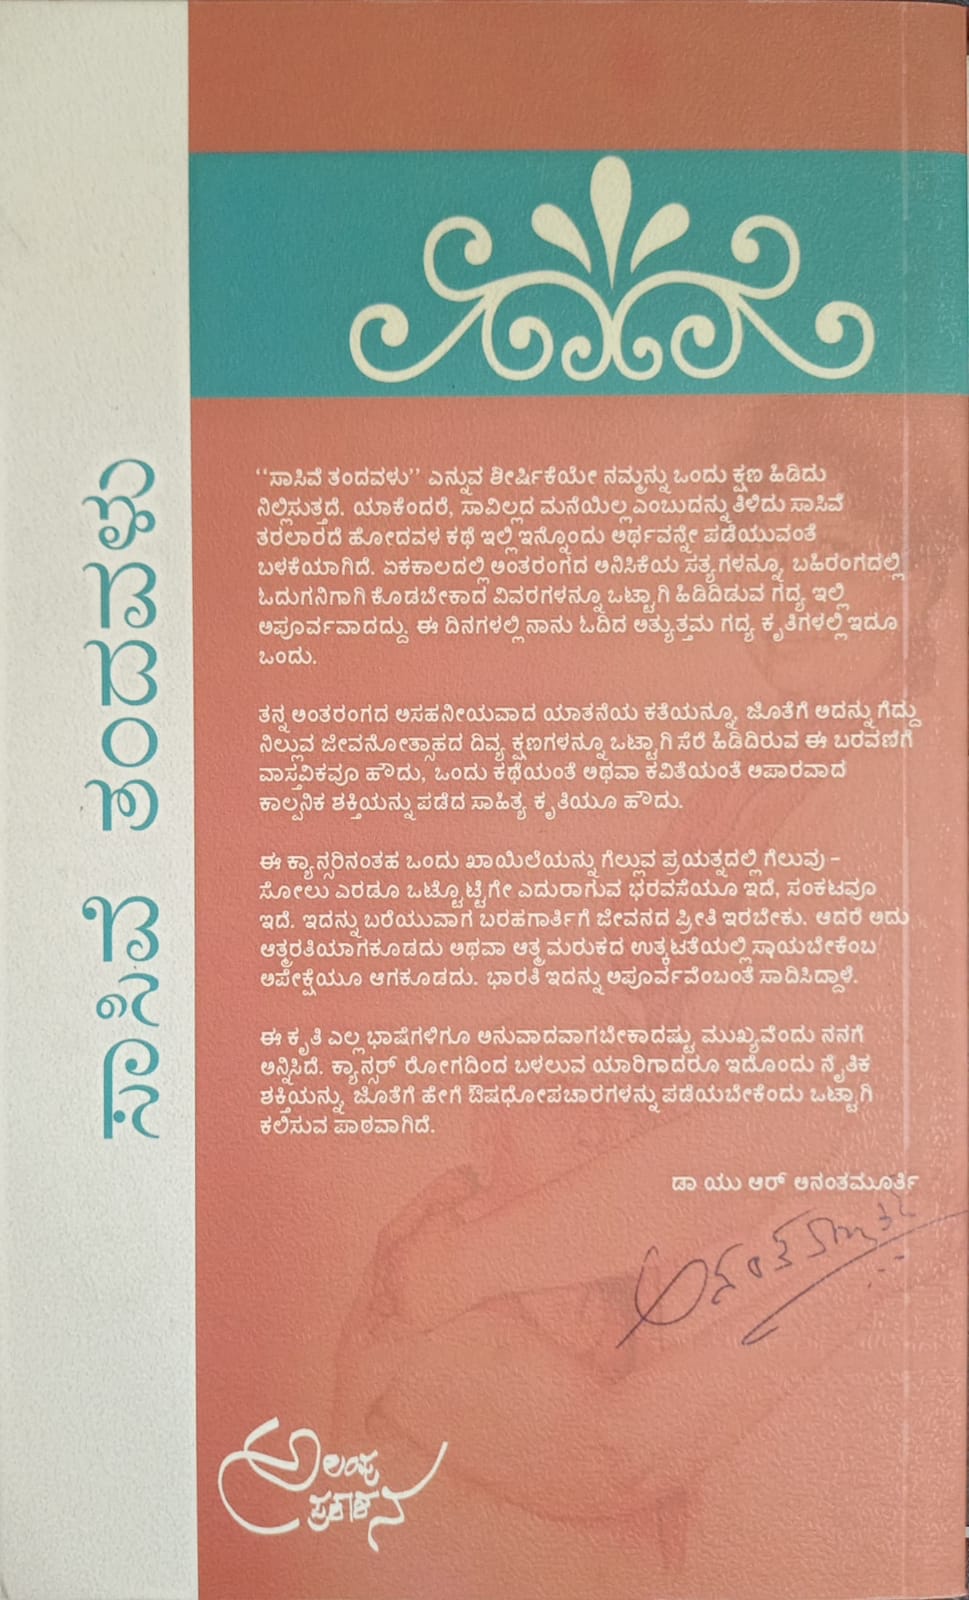 ಸಾಸಿವೆ ತಂದವಳು
“ಸಾಸಿವೆ ತಂದವಳು” ಎನ್ನುವ ಶೀರ್ಷಿಕೆಯೇ ನಮ್ಮನ್ನು ಒಂದು ಕ್ಷಣ ಹಿಡಿದು
ನಿಲ್ಲಿಸುತ್ತದೆ. ಯಾಕೆಂದರೆ, ಸಾವಿಲ್ಲದ ಮನೆಯಿಲ್ಲ ಎಂಬುದನ್ನು ತಿಳಿದು ಸಾಸಿವೆ
ತರಲಾರದೆ ಹೋದವಳ ಕಥೆ ಇಲ್ಲಿ ಇನ್ನೊಂದು ಅರ್ಥವನ್ನೇ ಪಡೆಯುವಂತೆ
ಬಳಕೆಯಾಗಿದೆ. ಏಕಕಾಲದಲ್ಲಿ ಅಂತರಂಗದ ಅನಿಸಿಕೆಯ ಸತ್ಯಗಳನ್ನೂ, ಬಹಿರಂಗದಲ್ಲಿ
ಓದುಗನಿಗಾಗಿ ಕೊಡಬೇಕಾದ ವಿವರಗಳನ್ನೂ ಒಟ್ಟಾಗಿ ಹಿಡಿದಿಡುವ ಗದ್ಯ ಇಲ್ಲಿ
ಅಪೂರ್ವವಾದದ್ದು. ಈ ದಿನಗಳಲ್ಲಿ ನಾನು ಓದಿದ ಅತ್ಯುತ್ತಮ ಗದ್ಯ ಕೃತಿಗಳಲ್ಲಿ ಇದೂ
ಒಂದು.
ತನ್ನ ಅಂತರಂಗದ ಅಸಹನೀಯವಾದ ಯಾತನೆಯ ಕತೆಯನ್ನೂ, ಜೊತೆಗೆ ಅದನ್ನು ಗೆದ್ದು
ನಿಲ್ಲುವ ಜೀವನೋತ್ಸಾಹದ ದಿವ್ಯ ಕ್ಷಣಗಳನ್ನೂ ಒಟ್ಟಾಗಿ ಸೆರೆ ಹಿಡಿದಿರುವ ಈ ಬರವಣಿಗೆ
ವಾಸ್ತವಿಕವೂ ಹೌದು, ಒಂದು ಕಥೆಯಂತೆ ಅಥವಾ ಕವಿತೆಯಂತೆ ಅಪಾರವಾದ
ಕಾಲ್ಪನಿಕ ಶಕ್ತಿಯನ್ನು ಪಡೆದ ಸಾಹಿತ್ಯ ಕೃತಿಯೂ ಹೌದು.
ಈ ಕ್ಯಾನ್ಸರಿನಂತಹ ಒಂದು ಖಾಯಿಲೆಯನ್ನು ಗೆಲ್ಲುವ ಪ್ರಯತ್ನದಲ್ಲಿ ಗೆಲುವು –
ಸೋಲು ಎರಡೂ ಒಟ್ಟೊಟ್ಟಿಗೇ ಎದುರಾಗುವ ಭರವಸೆಯೂ ಇದೆ, ಸಂಕಟವೂ
ಇದೆ. ಇದನ್ನು ಬರೆಯುವಾಗ ಬರಹಗಾರ್ತಿಗೆ ಜೀವನದ ಪ್ರೀತಿ ಇರಬೇಕು. ಆದರೆ ಅದು
ಆತ್ಮರತಿಯಾಗಕೂಡದು ಅಥವಾ ಆತ್ಮ ಮರುಕದ ಉತ್ಕಟತೆಯಲ್ಲಿ ಸ್ಥಾಯಬೇಕೆಂಬ
ಅಪೇಕ್ಷೆಯೂ ಆಗಕೂಡದು. ಭಾರತಿ ಇದನ್ನು ಅಪೂರ್ವವೆಂಬಂತೆ ಸಾದಿಸಿದ್ದಾಳೆ.
ಈ ಕೃತಿ ಎಲ್ಲ ಭಾಷೆಗಳಿಗೂ ಅನುವಾದವಾಗಬೇಕಾದಷ್ಟು ಮುಖ್ಯವೆಂದು ನನಗೆ
ಅನ್ನಿಸಿದೆ. ಕ್ಯಾನ್ಸರ್ ರೋಗದಿಂದ ಬಳಲುವ ಯಾರಿಗಾದರೂ ಇದೊಂದು ನೈತಿಕ
ಶಕ್ತಿಯನ್ನು, ಜೊತೆಗೆ ಹೇಗೆ ಔಷಧೋಪಚಾರಗಳನ್ನು ಪಡೆಯಬೇಕೆಂದು ಒಟ್ಟಾಗಿ
ಕಲಿಸುವ ಪಾಠವಾಗಿದೆ.
ಡಾ ಯು ಆರ್ ಅನಂತಮೂರ್ತಿ
ಅನಂತಮೂರ್ತಿ
ಅಲಂಪು
ಪ್ರಕಾಶನ